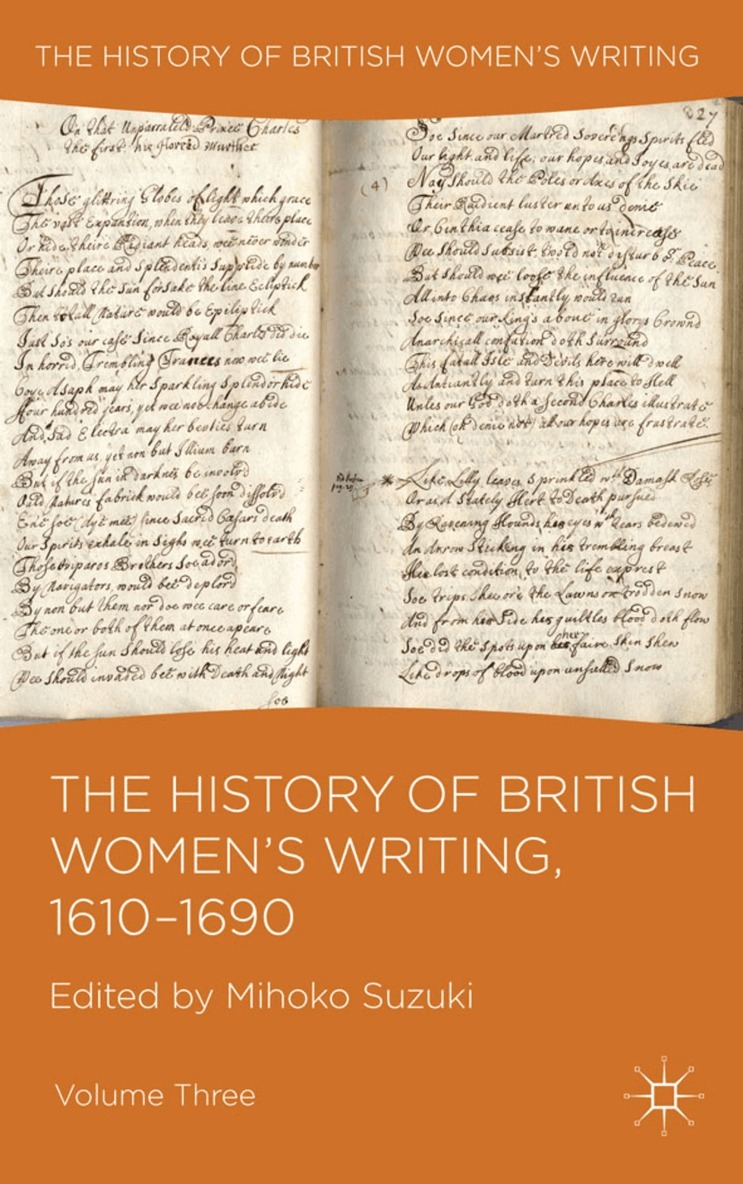 THE HISTORY OF BRITISH WOMEN'S WRITING
On that Unparraleld Prince Charles
the first his Horrid Murther
Those glittring Globes of light which grace
The vast Expansion, when they leave there place
Or hide theire Radiant heads, wee never wonder
Theire place and Splendentis Supplide by number
But should the Sun forsake the line Ecliptick
Then all Nature would be Epileptick
Just So's our case Since Royall Charles did die
In horred, Trembling Trances now wee lie
Coye Asaph may her Sparkling Splendor hide
ffour hundred years, yet wee noe change abide
And Sad Electra may her beuties turn
Away from us, yet non but Illium burn
But if the sun in darknes be involvd
Ould Natures fabrick would bee soon dissolvd
Ene soe (Aye mee) Since Sacred Cæsars death
Our Spirits exhale in Sighs wee turn to earth
Those biparos Brothers Soe adord
By Navigators, would bee deplord
By non but them nor doe wee care or feare
The one or both of them at once apeare
But if the sun should lose his heat and light
Wee Should invaded bee with Death and Night
Soe
227
Soe Since our Martred Soveraigns Spirits fled
Our light, and life, our hopes, and Joyes are dead
(4)
Nay Should the Poles or Axes of the Skie
Their Radient luster unto us denie
Or Cinthia cease to wane or to increase
Wee Should subsist t'would not disturb or Peace
But should wee loose the influence of the Sun
All into Chaos instantly would run
Soe Since our King's above in glory Crownd
Anarchicall confution doth Surround
This fatall Isle and Devils here will dwell
As Antiently and turn this place to Hell
Unles our God doth a Second Charles illustrate
Which (oh denie not) all our hopes are frustrate
Like Lilly leaves Sprinkled wth Damask Rose
Or as a Stately Hert to Death pursued
By Roearing Hounds, his eyes wth tears bedewed
An Arrow Sticking in his trembling breast
His lost condition, to the life exprest
Soe trips hee ore the Lawns on trodden Snow
And from his Side his guiltles blood doth flow
Soe did the Spots upon her faire Skin Shew
Like drops of blood upon unsullied Snow
THE HISTORY OF BRITISH
WOMEN'S WRITING,
1610–1690
Edited by Mihoko Suzuki
Volume Three